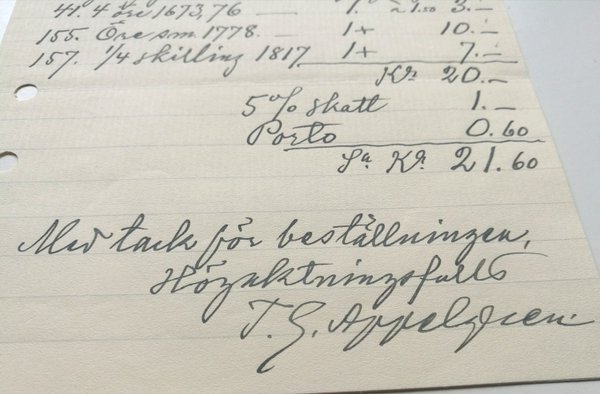 41. 4 öre 1673, 76 — 1. à 1.50 3.—
155. Öre sm 1778. — 1+ 10.—
157. 1/4 skilling 1817 1+ 7.—
Kr 20.—
5% skatt 1.—
Porto 0.60
Sa Kr 21.60
Med tack för beställningen,
Högaktningsfullt
T. G. Appelgren.